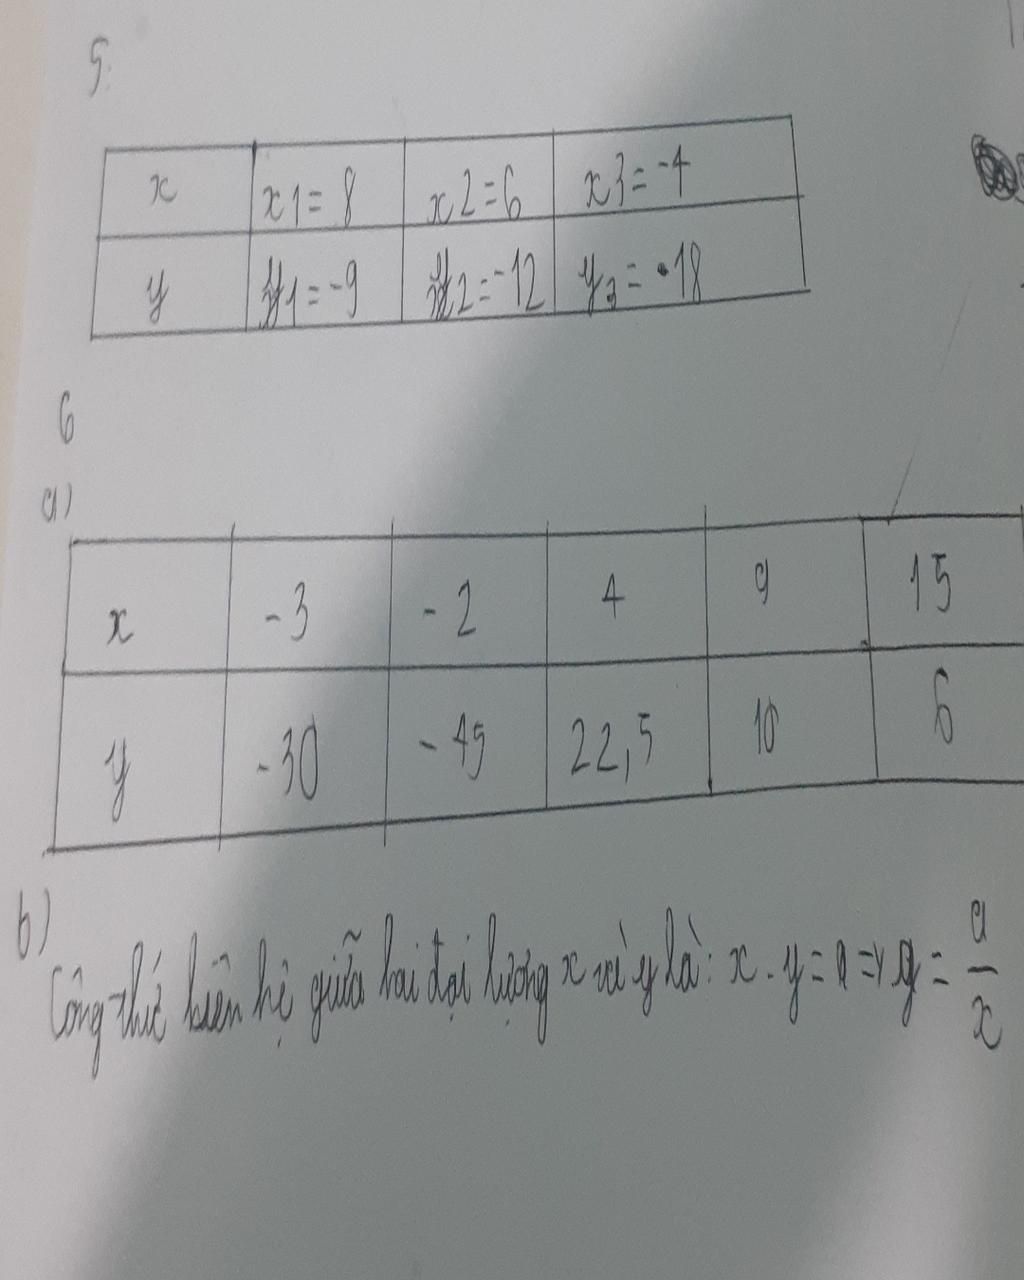 5.
x x1= 8 x2=6 x3=-4
y y1=-9 y2=-12 y3= 18
6
a)
x -3 -2 4 9 15
y -30 -45 22,5 10 6
b)
Công thức liên hệ giữa hai đại lượng x và y là: x . y = a => y = a/x